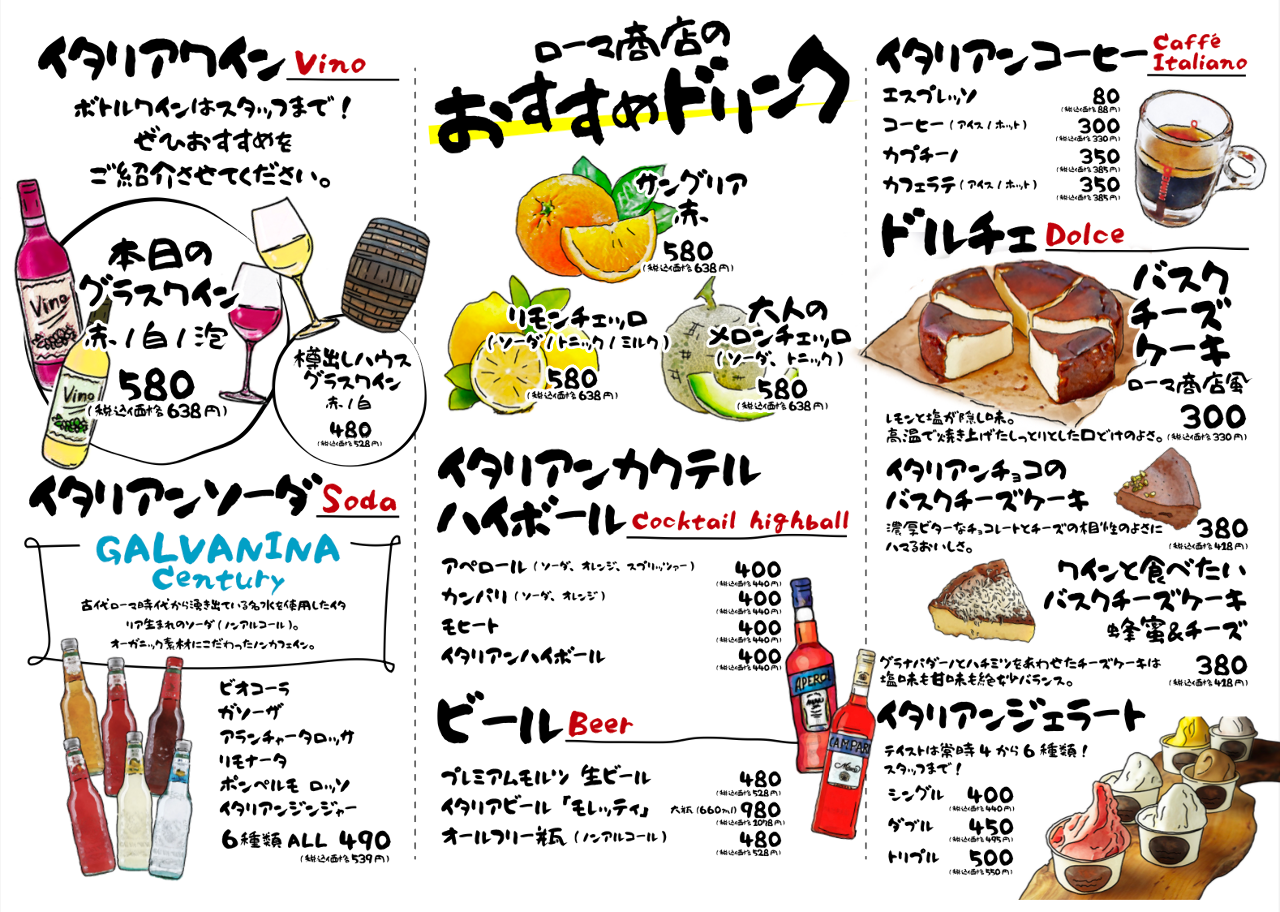 イタリアワイン Vino
ボトルワインはスタッフまで！
ぜひおすすめを
ご紹介させてください。
本日の
グラスワイン
赤/白/泡
580
(税込価格 638円)
樽出しハウス
グラスワイン
赤/白
480
(税込価格 528円)
Vino
Vino
イタリアンソーダ Soda
GALVANINA
Century
古代ローマ時代から湧き出ている名水を使用したイタ
リア生まれのソーダ(ノンアルコール)。
オーガニック素材にこだわったノンカフェイン。
ビオコーラ
ガソーザ
アランチャータロッサ
リモナータ
ポンペルモ ロッソ
イタリアンジンジャー
6種類 ALL 490
(税込価格 539円)
ローマ商店の
おすすめドリンク
サングリア
赤、
580
(税込価格 638円)
リモンチェッロ
(ソーダ/トニック/ミルク)
580
(税込価格 638円)
大人の
メロンチェッロ
(ソーダ、トニック)
580
(税込価格 638円)
イタリアンカクテル
ハイボール Cocktail highball
アペロール (ソーダ、オレンジ、スプリッツァー) 400
(税込価格 440円)
カンパリ (ソーダ、オレンジ) 400
(税込価格 440円)
モヒート 400
(税込価格 440円)
イタリアンハイボール 400
(税込価格 440円)
APEROL
CAMPARI
ビール Beer
プレミアムモルツ 生ビール 480
(税込価格 528円)
イタリアビール「モレッティ」 大瓶(660ml) 980
(税込価格 1078円)
オールフリー瓶 (ノンアルコール) 480
(税込価格 528円)
イタリアンコーヒー Caffé
Italiano
エスプレッソ 80
(税込価格 88円)
コーヒー (アイス/ホット) 300
(税込価格 330円)
カプチーノ 350
(税込価格 385円)
カフェラテ (アイス/ホット) 350
(税込価格 385円)
ドルチェ Dolce
バスク
チーズ
ケーキ
ローマ商店風
300
(税込価格 330円)
レモンと塩が隠し味。
高温で焼き上げたしっとりとした口どけのよさ。
イタリアンチョコの
バスクチーズケーキ
濃厚ビターなチョコレートとチーズの相性のよさに
ハマるおいしさ。
380
(税込価格 418円)
ワインと食べたい
バスクチーズケーキ
蜂蜜&チーズ
グラナパダーノとハチミツをあわせたチーズケーキは
塩味も甘味も絶妙バランス。
380
(税込価格 418円)
イタリアンジェラート
テイストは常時4から6種類！
スタッフまで！
シングル 400
(税込価格 440円)
ダブル 450
(税込価格 495円)
トリプル 500
(税込価格 550円)